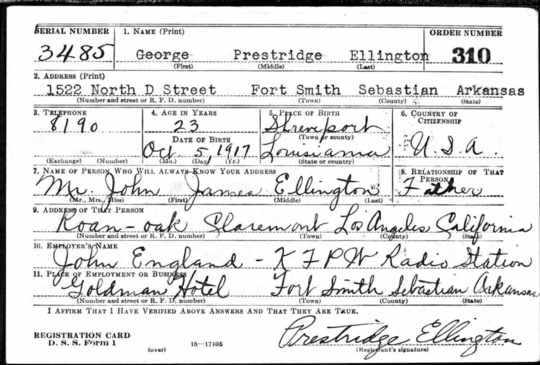 SERIAL NUMBER 1. NAME (Print) ORDER NUMBER
3485 George Prestridge Ellington 310
(First) (Middle) (Last)
2. ADDRESS (Print)
1522 North D Street Fort Smith Sebastian Arkansas
(Number and street or R. F. D. number) (Town) (County) (State)
3. TELEPHONE 4. AGE IN YEARS 5. PLACE OF BIRTH 6. COUNTRY OF CITIZENSHIP
8190 23 Shreveport
DATE OF BIRTH (Town or county)
Oct 5, 1917 Louisianna U.S.A.
(Exchange) (Number) (Mo.) (Day) (Yr.) (State or country)
7. NAME OF PERSON WHO WILL ALWAYS KNOW YOUR ADDRESS 8. RELATIONSHIP OF THAT PERSON
Mr. John James Ellington Father
(Mr., Mrs., Miss) (First) (Middle) (Last)
9. ADDRESS OF THAT PERSON
Roan-oak Claremont Los Angeles California
(Number and street or R. F. D. number) (Town) (County) (State)
10. EMPLOYER'S NAME
John England - KFPW Radio Station
11. PLACE OF EMPLOYMENT OR BUSINESS
Goldman Hotel Fort Smith Sebastian Arkansas
(Number and street or R. F. D. number) (Town) (County) (State)
I AFFIRM THAT I HAVE VERIFIED ABOVE ANSWERS AND THAT THEY ARE TRUE.
REGISTRATION CARD Prestridge Ellington
D. S. S. Form 1 (over) 16-17105 (Registrant's signature)